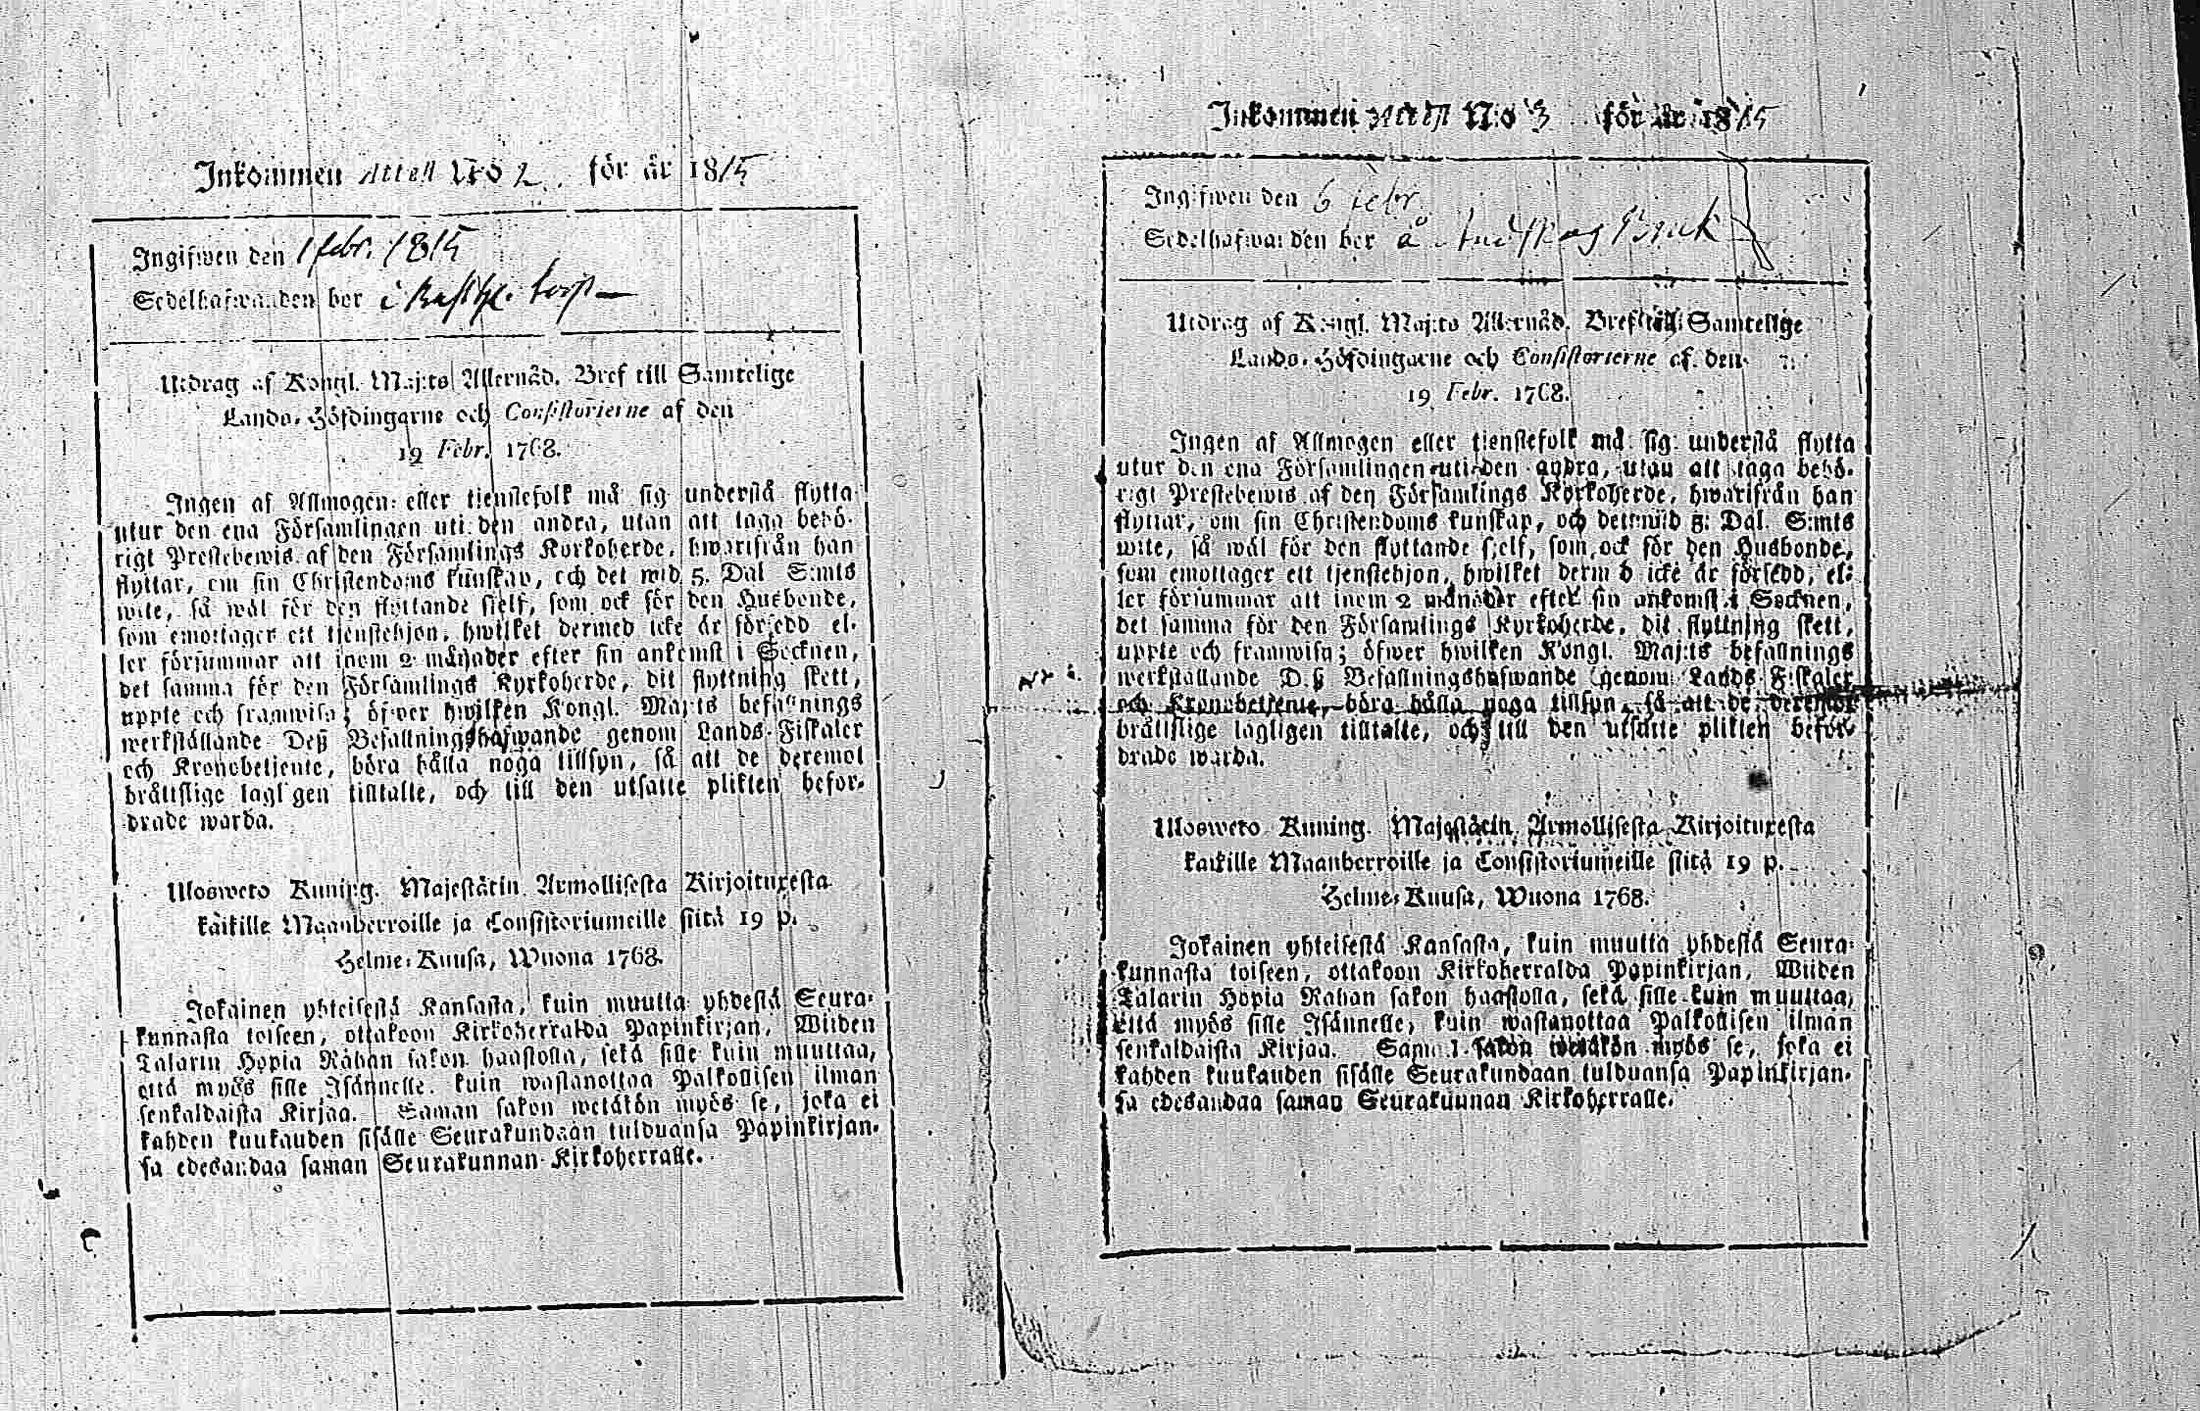 Inkommen Attest N:o 2. för år 1815
Ingifwen den 1 febr. 1815
Sedelhafwanden bor i
Utdrag af Kongl. Maj:ts Allernåd. Bref till Samtelige
Lands-Höfdingarne och Consistorierne af den
19 Febr. 1768.
Ingen af Allmogen eller tienstefolk må sig understå flytta
utur den ena Församlingen uti den andra, utan att taga behö-
rigt Prestebewis af den Församlings Kyrkoherde, hwarifrån han
flyttar, om sin Christendoms kunskap, och det wid 5. Dal S:mts
wite, så wäl för den flyttande sjelf, som ock för den Husbonde,
som emottager ett tjenstehjon, hwilket dermed icke är försedd el-
ler försummar att inom 2 månader efter sin ankomst i Socknen,
det samma för den Församlings Kyrkoherde, dit flyttning skett,
uppte och framwisa; öfwer hwilken Kongl. Maj:ts befallnings
werkställande Deß Befallningshafwande genom Lands-Fiskaler
och Kronobetjente, böra hålla noga tillsyn, så att de deremot
bråttslige lagligen tilltalte, och till den utsatte plikten befor-
drade warda.
Ulosweto Kuning. Majestätin Armollisesta Kirjoituxesta
kaikille Maanherroille ja Consistoriumeille siitä 19 p.
Helme-Kuusa, Wuona 1768.
Jokainen yhteisestä Kansasta, kuin muutta yhdestä Seura-
kunnasta toiseen, ottakoon Kirkoherralda Papinkirjan, Wiiden
Talarin Hopia Rahan sakon haastolla, sekä sille kuin muuttaa,
että myös sille Isännelle, kuin wastanottaa Palkollisen ilman
senkaldaista Kirjaa. Saman sakon wetäkön myös se, joka ei
kahden kuukauden sisälle Seurakundaan tulduansa Papinkirjan-
sa edesandaa saman Seurakunnan Kirkoherralle.
Inkommen Attest N:o 3 för år 1815
Ingifwen den 6 febr.
Sedelhafwanden bor å Bruk
Utdrag af Kongl. Maj:ts Allernåd. Bref till Samtelige
Lands-Höfdingarne och Consistorierne af den
19 Febr. 1768.
Ingen af Allmogen eller tjenstefolk må sig understå flytta
utur den ena Församlingen uti den andra, utan att taga behö-
rigt Prestebewis af den Församlings Kyrkoherde, hwarifrån han
flyttar, om sin Christendoms kunskap, och det wid 5. Dal. S:mts
wite, så wäl för den flyttande sjelf, som ock för den Husbonde,
som emottager ett tjenstehjon, hwilket dermed icke är försedd, el-
ler försummar att inom 2 månader efter sin ankomst i Socknen,
det samma för den Församlings Kyrkoherde, dit flyttning skett,
uppte och framwisa; öfwer hwilken Kongl. Maj:ts befallnings
werkställande Deß Befallningshafwande genom Lands-Fiskaler
och Kronobetjente, böra hålla noga tillsyn, så att de deremot
bråttslige lagligen tilltalte, och till den utsatte plikten befor-
drade warda.
Ulosweto Kuning. Majestätin Armollisesta Kirjoituxesta
kaikille Maanherroille ja Consistoriumeille siitä 19 p.
Helme-Kuusa, Wuona 1768.
Jokainen yhteisestä Kansasta, kuin muutta yhdestä Seura-
kunnasta toiseen, ottakoon Kirkoherralda Papinkirjan, Wiiden
Talarin Hopia Rahan sakon haastolla, sekä sille kuin muuttaa,
että myös sille Isännelle, kuin wastanottaa Palkollisen ilman
senkaldaista Kirjaa. Saman sakon wetäkön myös se, joka ei
kahden kuukauden sisälle Seurakundaan tulduansa Papinkirjan-
sa edesandaa saman Seurakunnan Kirkoherralle.